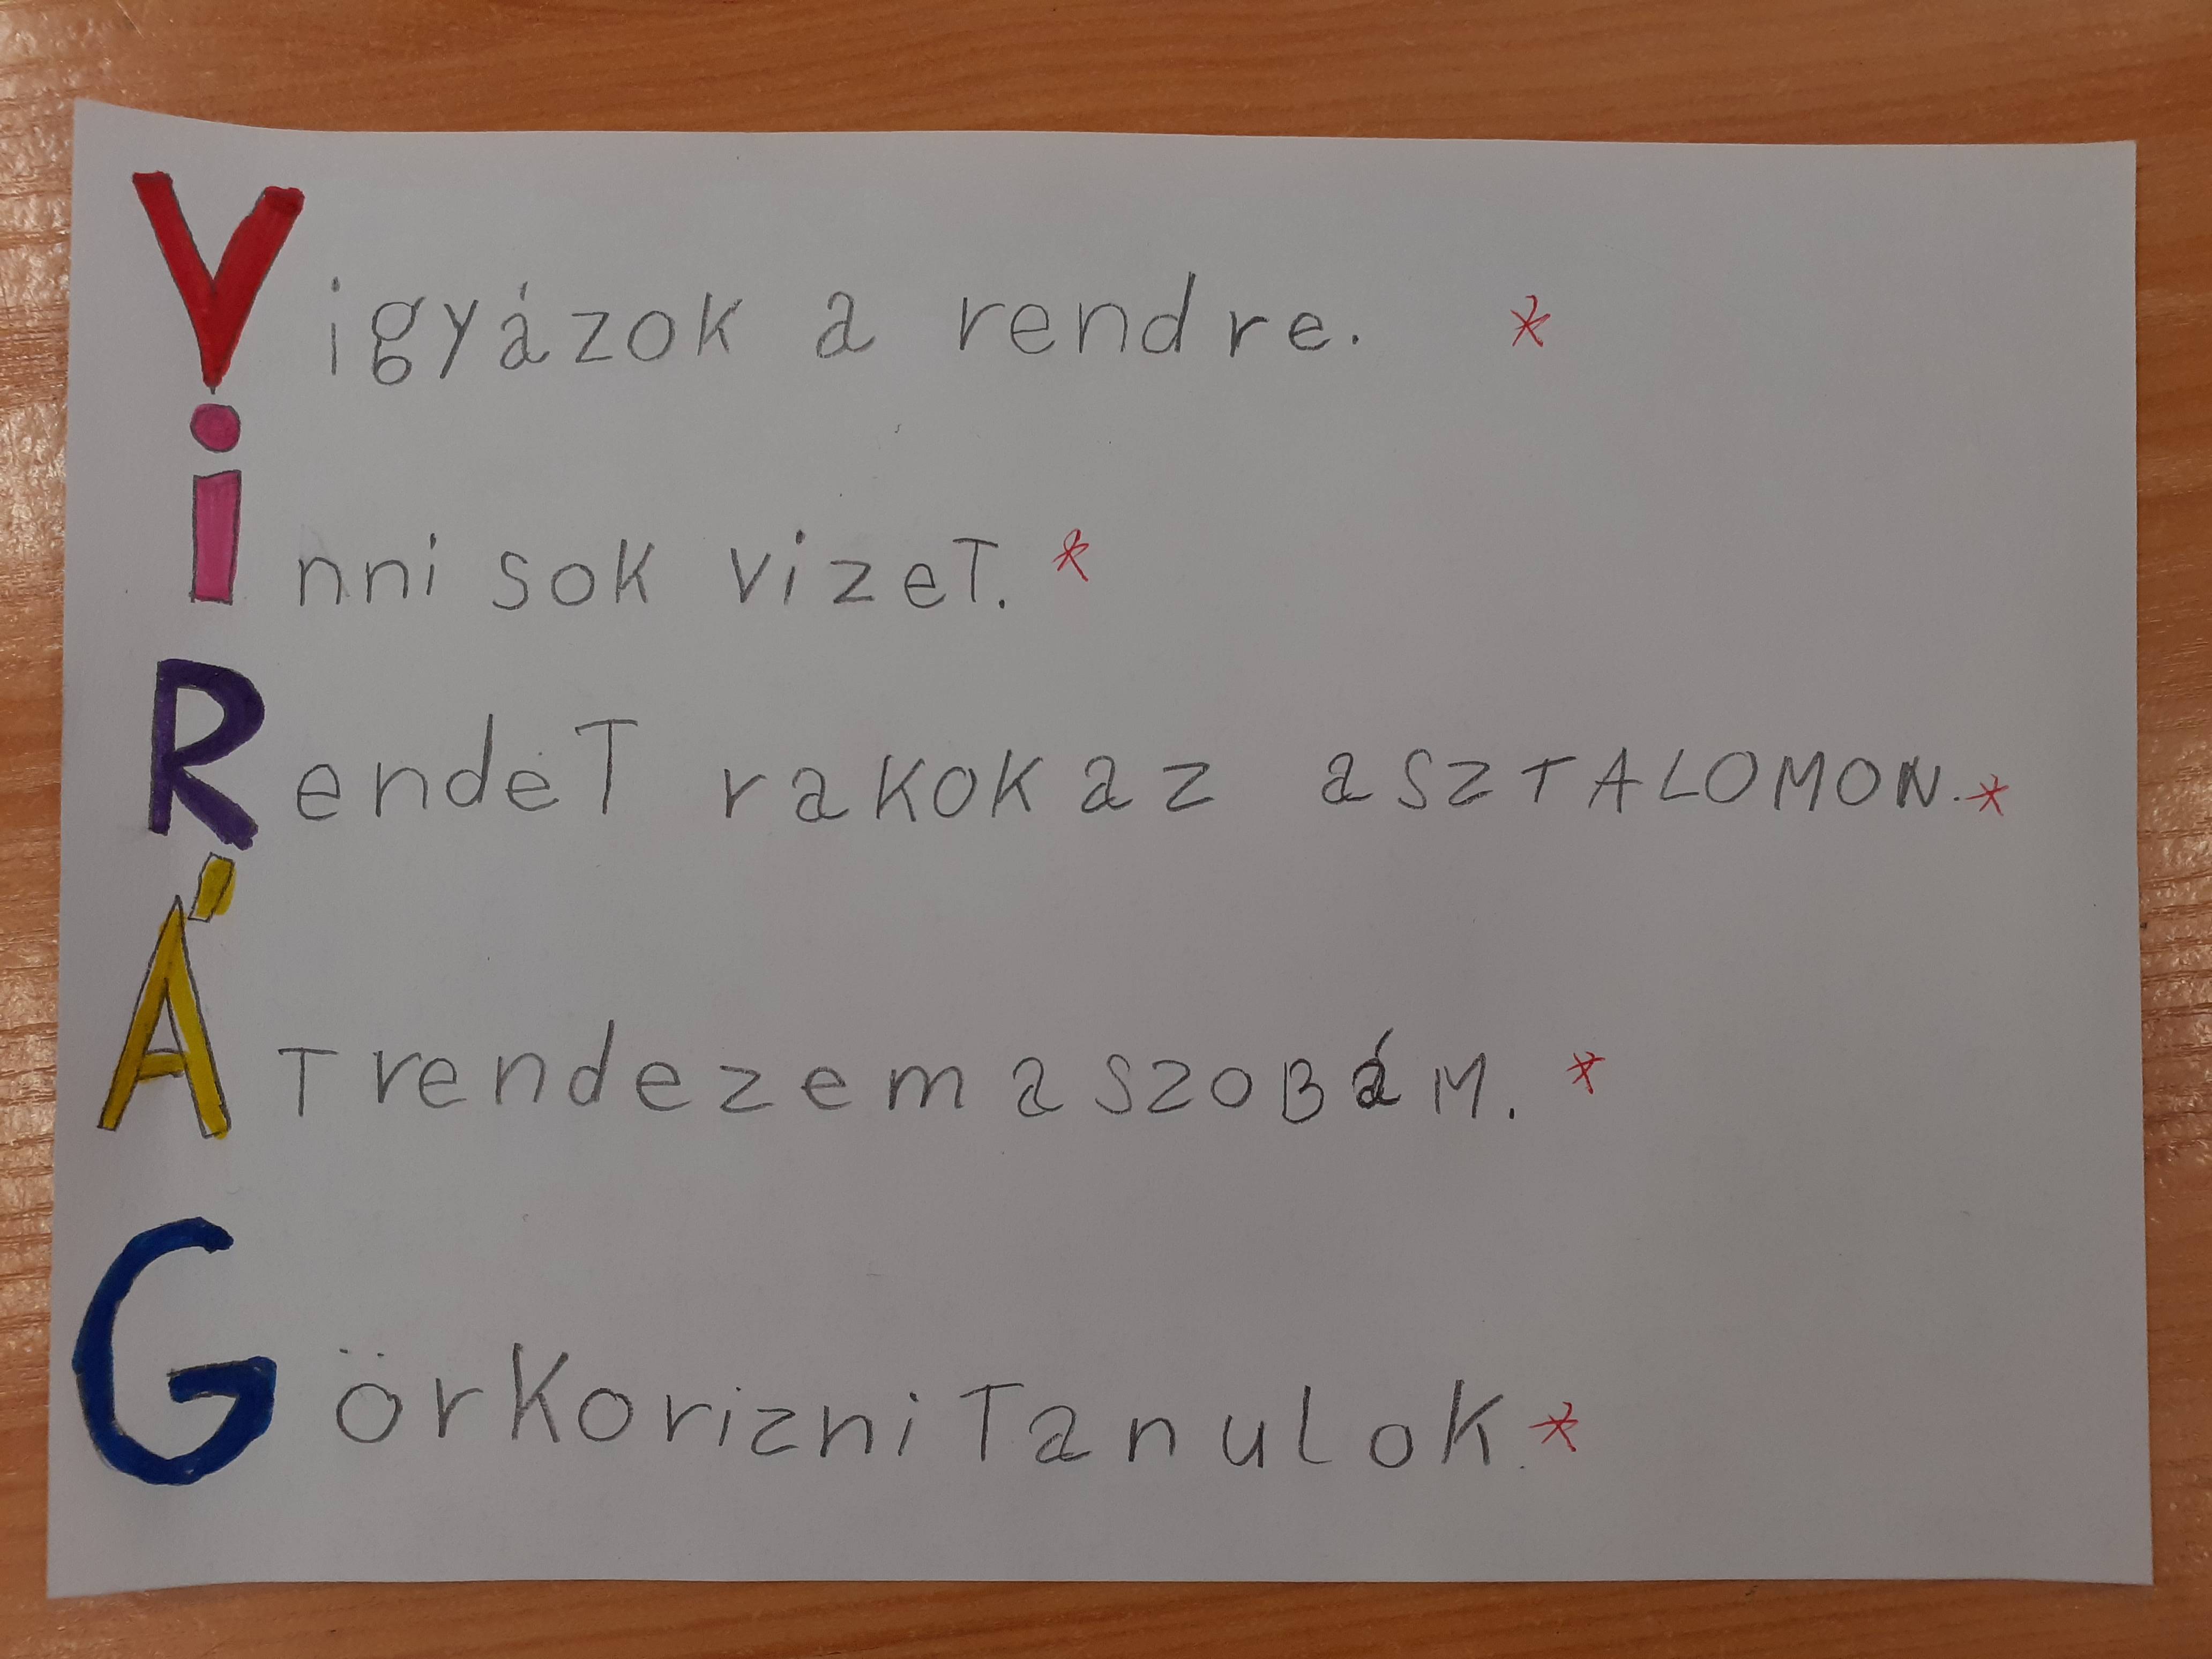 Vigyázok a rendre. *
inni sok vizet. *
Rendet rakok az aszTALOMON. *
Átrendezem a szobám. *
Görkorizni Tanulok. *